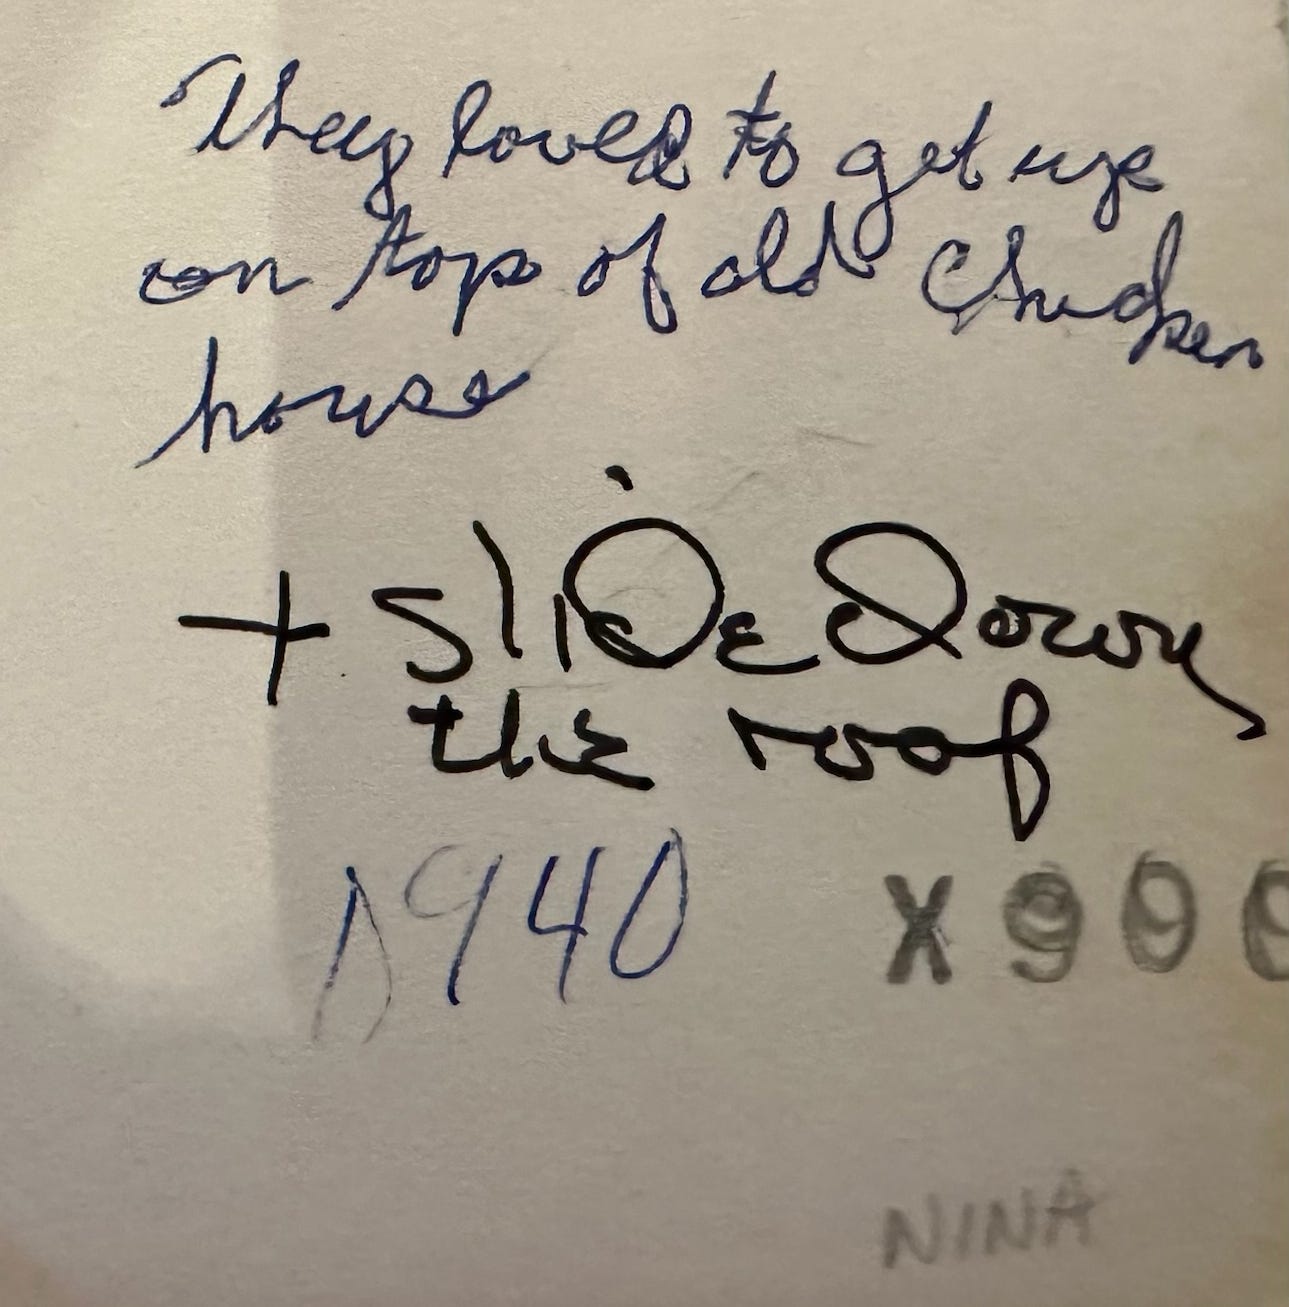 They loved to get up
on top of old Chicken
house
+ slide down
the roof
1940
NINA